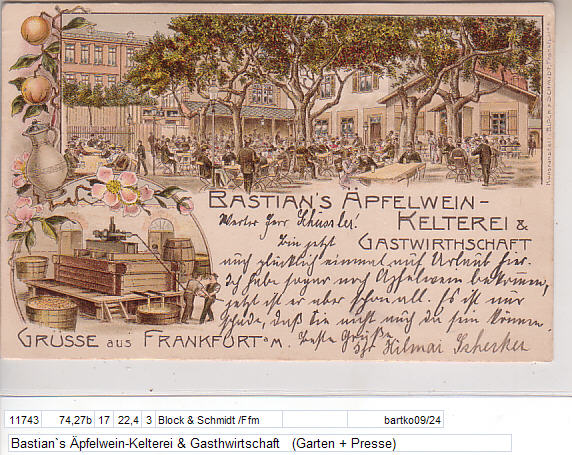 Kunstanstalt Block & Schmidt, Frankfurt a/M
BASTIAN'S ÄPFELWEIN-
KELTEREI &
GASTWIRTHSCHAFT
Werter Herr Schüssler!
Bin jetzt
auch glücklich einmal auf Urlaub hier.
Ich habe sogar noch Apfelwein bekommen,
jetzt ist er aber schon all. Es ist nur
schade, daß Sie nicht auch da sein können.
Beste Grüße
Ihr Hilmar
GRÜSSE AUS FRANKFURT a/M.
11743 74,27b 17 22,4 3 Block & Schmidt /Ffm bartko09/24
Bastian`s Äpfelwein-Kelterei & Gasthwirtschaft (Garten + Presse)